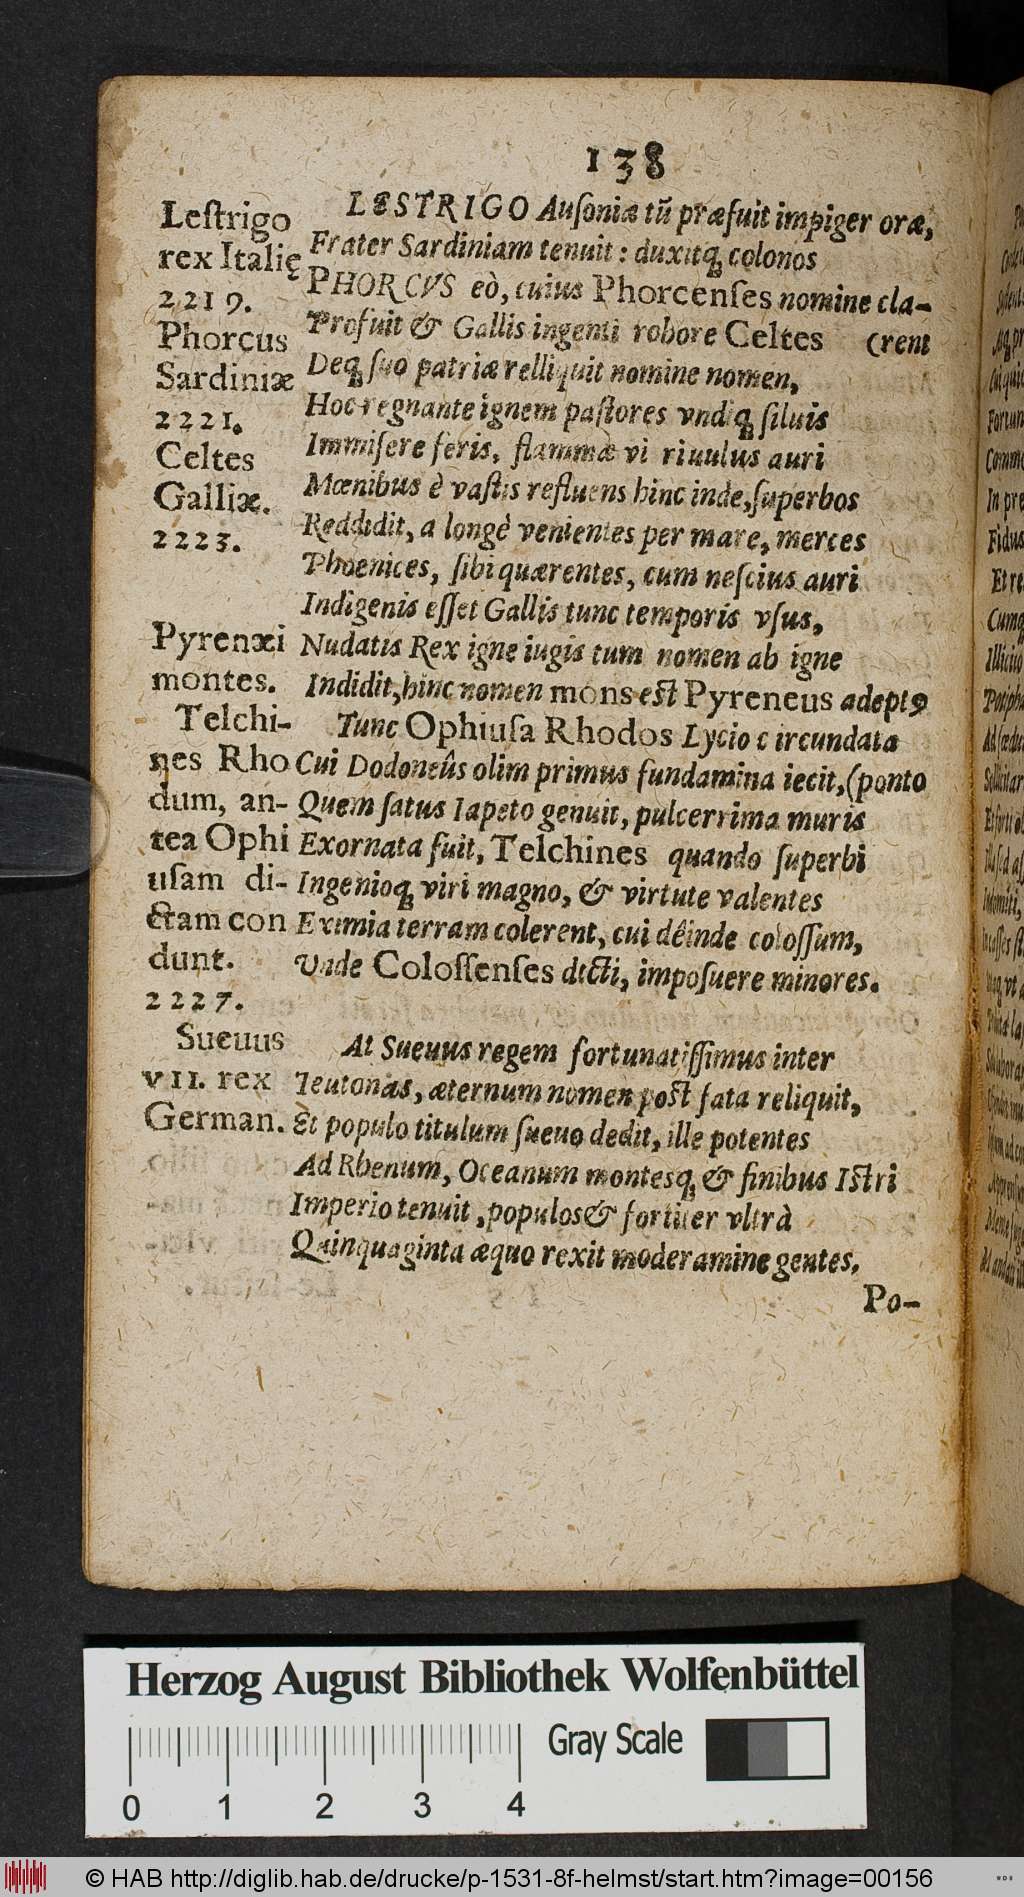 138
Leſtrigo
rex Italię
2219.
Phorcus
Sardiniæ
2221.
Celtes
Galliæ.
2223.
Pyrenæi
montes.
Telchi-
nes Rho
dum, an-
tea Ophi
uſam di-
ctam con
dunt.
2227.
Sueuus
VII. rex
German.
LESTRIGO Auſoniæ tũ præfuit impiger oræ,
Frater Sardiniam tenuit: duxitq́ꝫ colonos
PHORCVS eò, cuius Phorcenſes nomine cla-
Profuit & Gallis ingenti robore Celtes (rent
Deqꝫ ſuo patriæ relliquit nomine nomen,
Hoc regnante ignem paſtores vndiqꝫ ſiluis
Immiſere feris, flammæ vi riuulus auri
Mœnibus è vaſtis refluens hinc inde, ſuperbos
Reddidit, a longè venientes per mare, merces
Phoenices, ſibi quærentes, cum neſcius auri
Indigenis eſſet Gallis tunc temporis vſus,
Nudatis Rex igne iugis tum nomen ab igne
Indidit, hinc nomen mons est Pyreneus adeptꝰ
Tunc Ophiuſa Rhodos Lycio circundata
Cui Dodoneûs olim primus fundamina iecit, (ponto
Quem ſatus Iapeto genuit, pulcerrima muris
Exornata fuit, Telchines quando ſuperbi
Ingenioqꝫ viri magno, & virtute valentes
Eximia terram colerent, cui déinde coloſſum,
Vnde Coloſſenſes dicti, impoſuere minores.
At Sueuus regem fortunatiſſimus inter
Teutonas, æternum nomen post fata reliquit,
Et populo titulum ſueuo dedit, ille potentes
Ad Rhenum, Oceanum montesqꝫ & finibus Istri
Imperio tenuit, populos & fortiter vltrà
Quinquaginta æquo rexit moderamine gentes.
Po-
Herzog August Bibliothek Wolfenbüttel
Gray Scale
0 1 2 3 4
© HAB http://diglib.hab.de/drucke/p-1531-8f-helmst/start.htm?image=00156